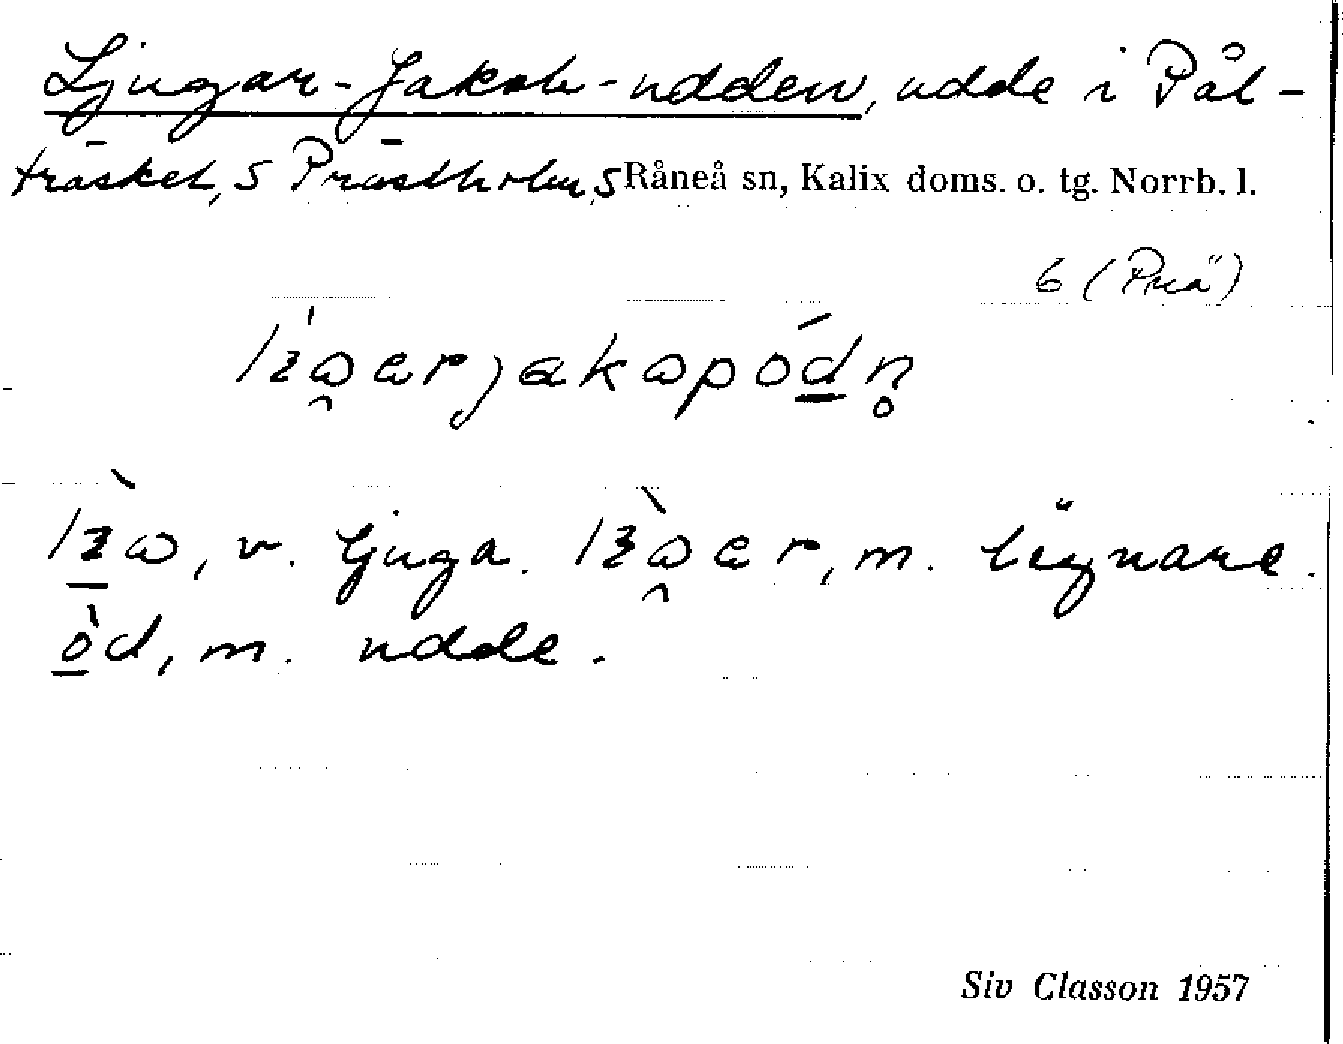 Ljugar-Jakob-udden, udde i Pål-
träsket, S Prästholm, S Råneå sn, Kalix doms. o. tg. Norrb. l.
6 (Prä)
v. ljuga. m. lögnare.
òd, m. udde.
Siv Classon 1957